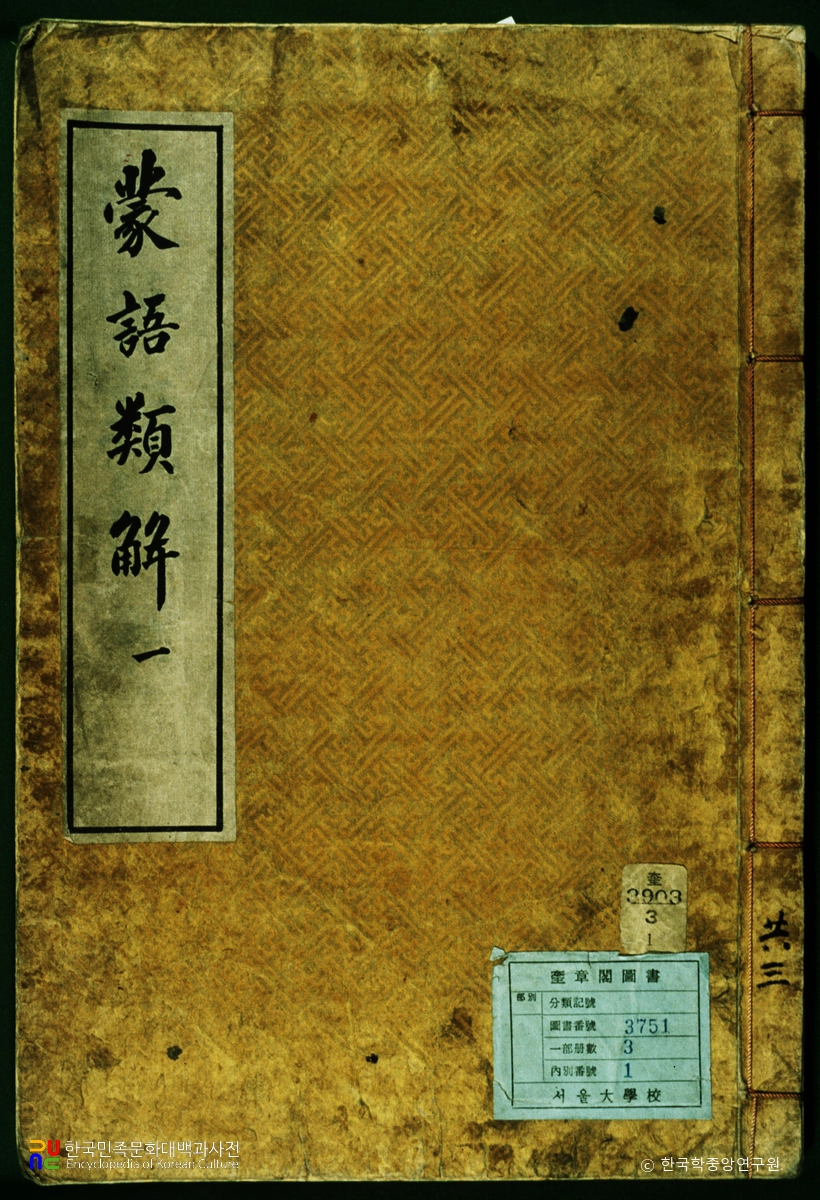 蒙語類解 一
共三
奎
3903
3
1
奎章閣圖書
部別
分類記號
圖書番號 3751
一部册數 3
內別番號 1
서울大學校
한국민족문화대백과사전
Encyclopedia of Korean Culture
© 한국학중앙연구원